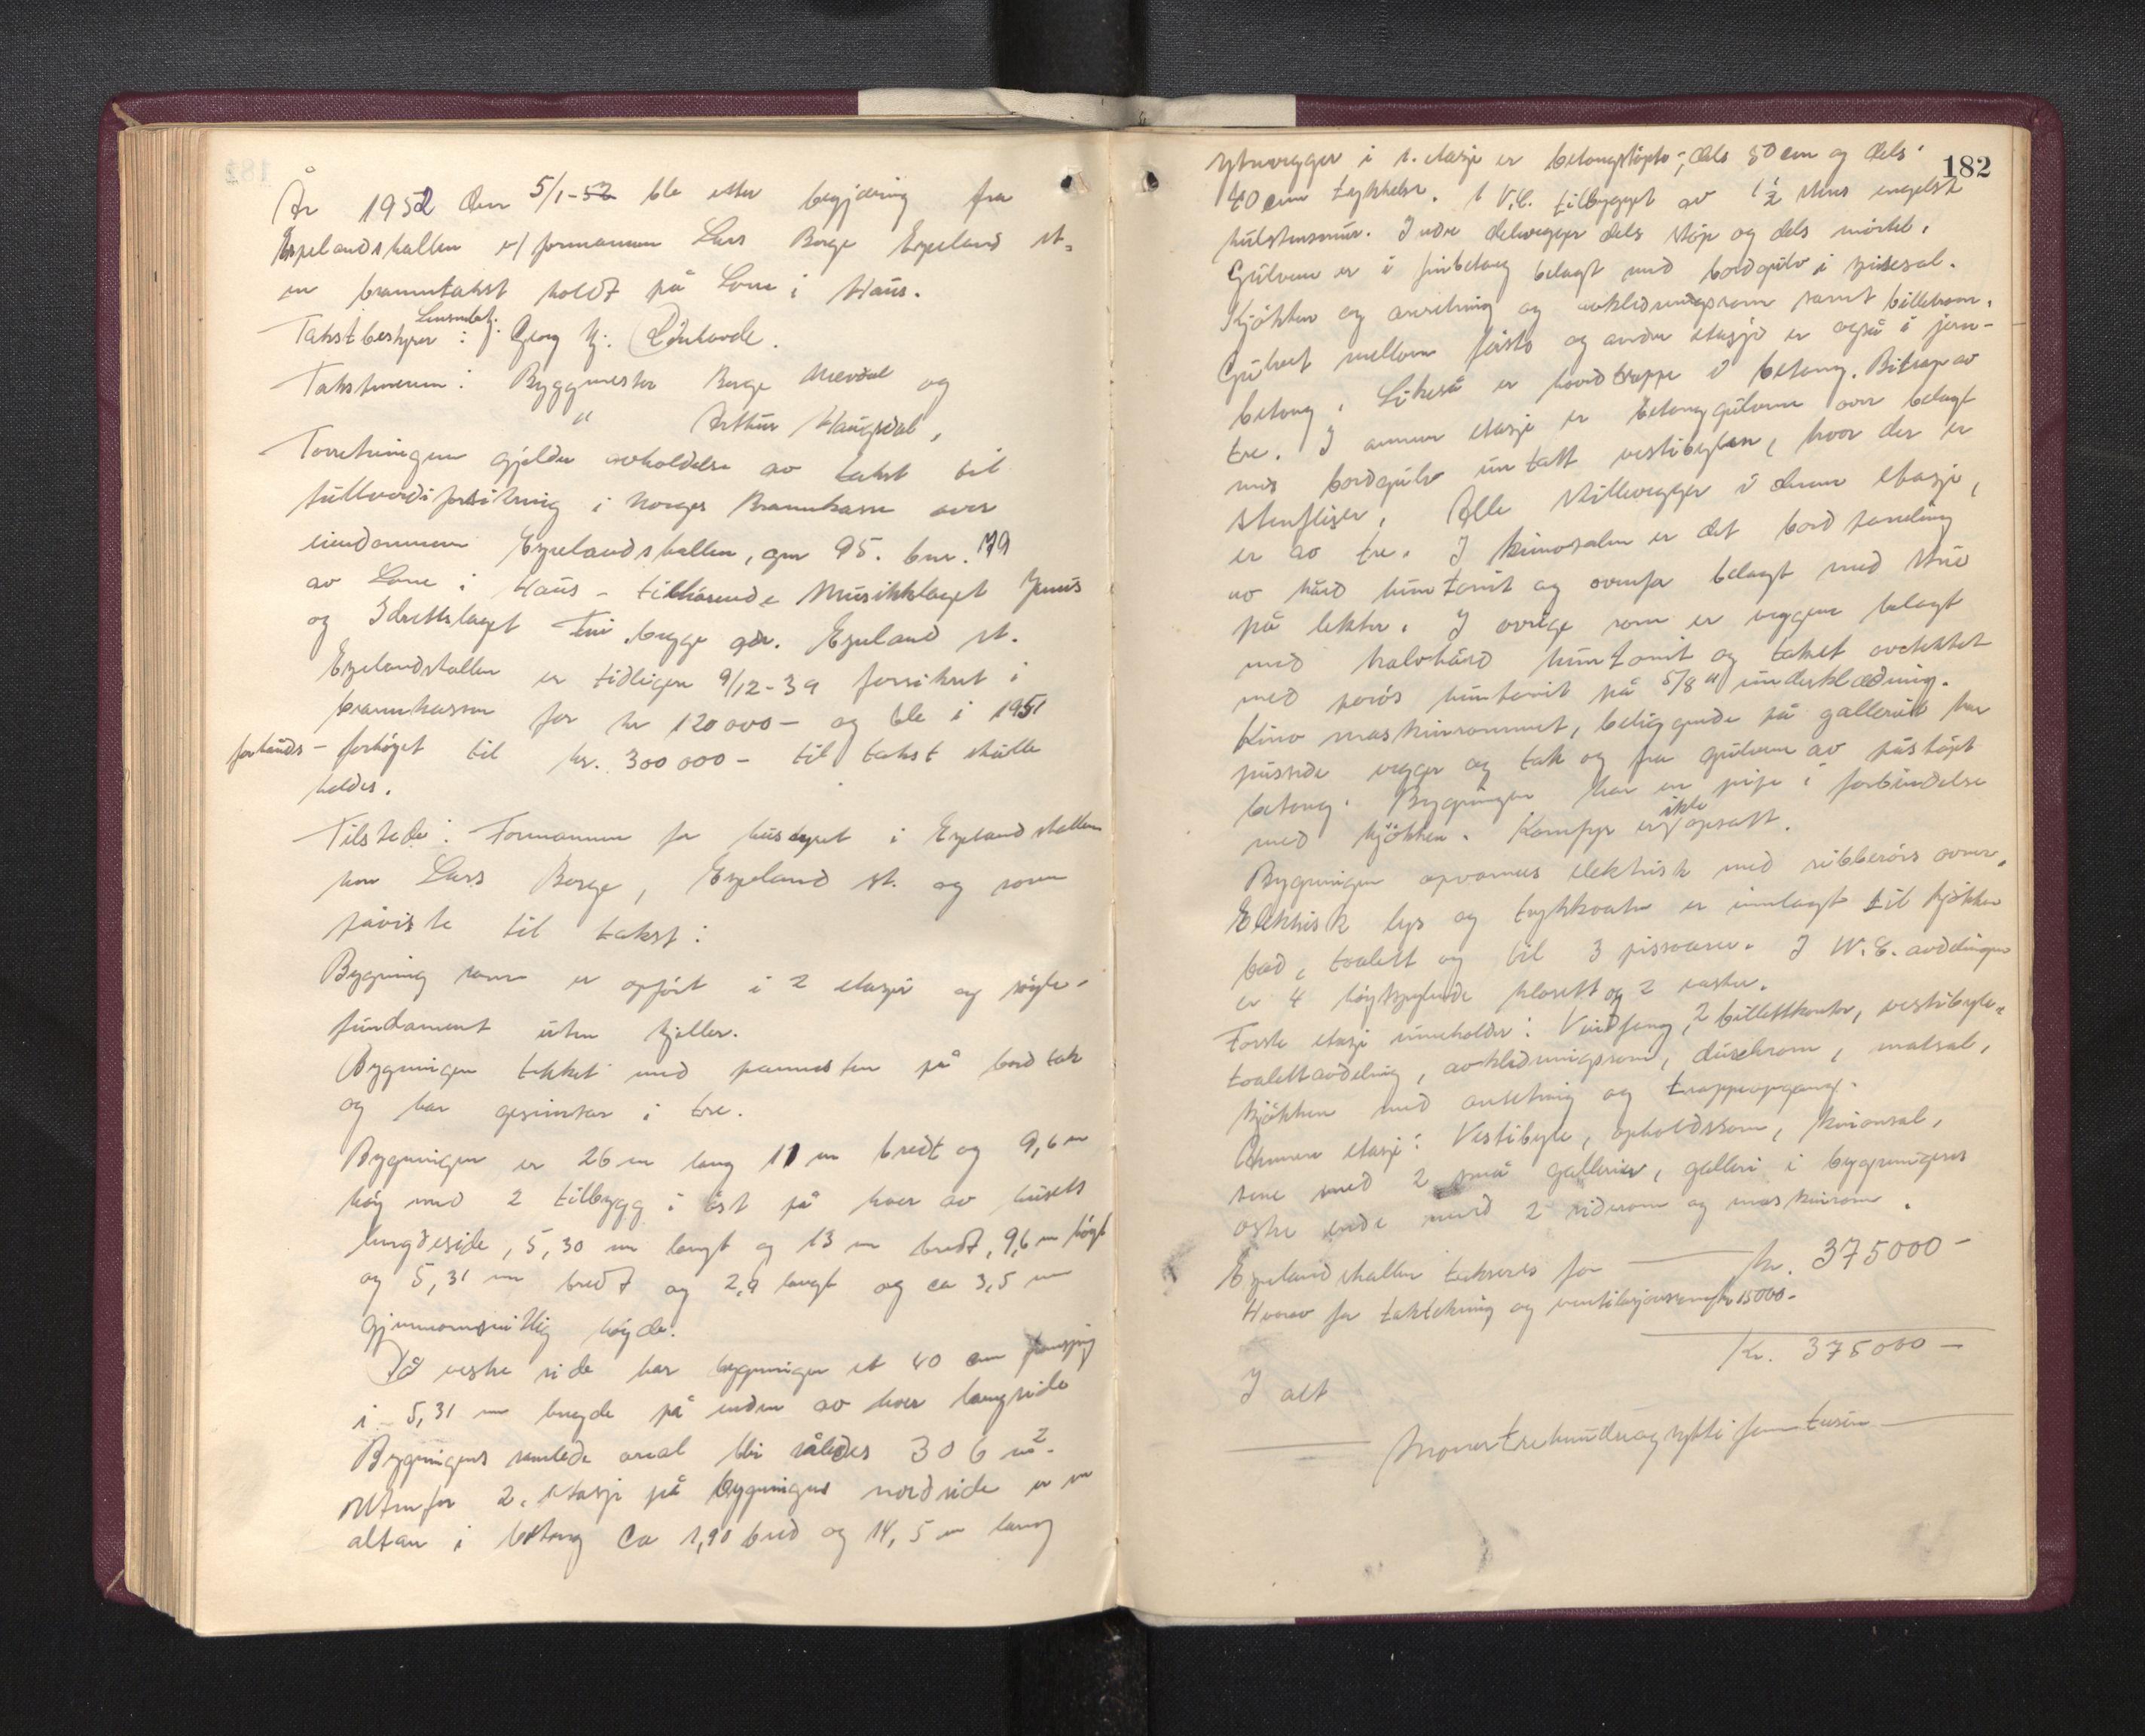 År 1952 den 5/1-52 ble etter begjæring fra
Espelandshallen v/ formannen Lars Borge Espeland st.
en branntakst holdt på Lone i Haus.
Takstbestyrer : Lensmannsbetj. Georg
Takstmenn : Byggmester Borge Mævdal og
" Arthur Haugsdal,
Forretningen gjelder avholdelse av takst til
fullverdiforsikring i Norges Brannkasse over
eiendommen Espelandshallen, gnr 95. bnr. 79
av Lone i Haus - tilhørende Musikklaget
og Idrettslaget begge adr. Espeland st.
Espelandshallen er tidligere 9/12-39 forsikret i
brannkassen for kr 120 000 - og ble i 1951
forhåds - forhøyet til kr. 300 000 - til takst skulle
holdes.
Tilstede : Formannen for husstyret i Espelandshallen
herr Lars Borge, Espeland st. og som
påviste til takst :
Bygning som er opført i 2 etasjer og søyle-
fundament uten kjeller.
Bygningen tekket med pannesten på bord tak
og har gesimser i tre.
Bygningen er 26 m lang 11 m bredt og 9,6 m
høy med 2 tilbygg i øst på hver av husets
lengdeside, 5,30 m langt og 13 m bredt, 9,6 m høyt
og 5,31 m bredt og 2,9 langt og ca 3,5 m
gjennomsnittlig høyde.
På vestre side har bygningen et 40 cm fremspring
i 5,31 m lengde på enden av hver langside
Bygningens samlede areal blir således 306 m².
Utenfor 2. etasje på bygningens nordside er en
altan i betong ca 1,90 bred og 14,5 m lang
182
Yttervegger i 1. etasje er betongstøpte; dels 50 cm og dels
40 cm tykkelse. 1 V.C. tilbygget av 1 1/2 stens engelsk
hulstensmur. Indre delevegger dels støp og dels mørtel.
Gulvene er i finbetong belagt med bordgulv i spisesal.
Kjøkken og anretning og avkledningsrom samt billettrom.
Gulvet mellom første og andre etasje er også i jern-
betong. Likeså er hovedtrappe i betong. Bitrapp av
tre. I annen etasje er betonggulvene over belagt
med bordgulv untatt vestibylen, hvor der er
stenfliser. Alle skillevegger i denne etasje,
er av tre. I kinosalen er det bord paneling
av hård huntonit og ovenfor belagt med strie
på lekter. I øvrige rom er veggene belagt
med halvhård huntonit og taket avdekket
med porøs huntonit på 5/8" underkledning.
Kino maskinrommet, beliggende på galleriet har
pussede vegger og tak og fra gulvene av påstøpt
betong. Bygningen har en pipe i forbindelse
med kjøkken. Komfyr er ikke opsatt.
Bygningen opvarmes elektrisk med ribberørs ovner.
Elektrisk lys og trykkvatn er innlagt til kjøkken
bad, toalett og til 3 pissoarer. I W.C. avdelingen
er 4 høytspylende klosett og 2 vasker.
Første etasje inneholder : Vindfang, 2 billettkontor, vestibyle,
toalettavdeling, avkledningsrom, dusjrom, matsal,
kjøkken med anretning og trappeopgang.
Annen etasje : Vestibyle, opholdsrom, kinosal,
sene med 2 små gallerier, galleri i bygningens
østre ende med 2 siderom og maskinrom.
Espelandshallen takseres for kr. 375000 -
Herav for taktekning og ventilasjonsanlegg kr 15000.-
Kr. 375000 -
I alt
Kroner trehundreogsyttifemtusen